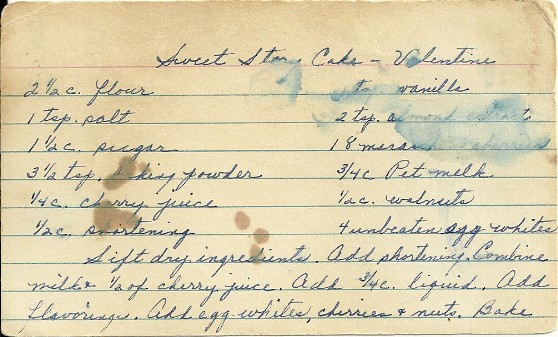 Sweet Story Cake - Valentine
2 1/2 c. flour vanilla
1 tsp. salt 2 tsp. almond extract
1 1/2 c. sugar 18 cherries
3 1/2 tsp. baking powder 3/4 c Pet milk
1/4 c. cherry juice 1/2 c. walnuts
1/2 c. shortening 4 unbeaten egg whites
Sift dry ingredients. Add shortening. Combine
milk & 1/2 of cherry juice. Add 3/4 c. liquid. Add
flavorings. Add egg whites, cherries & nuts. Bake